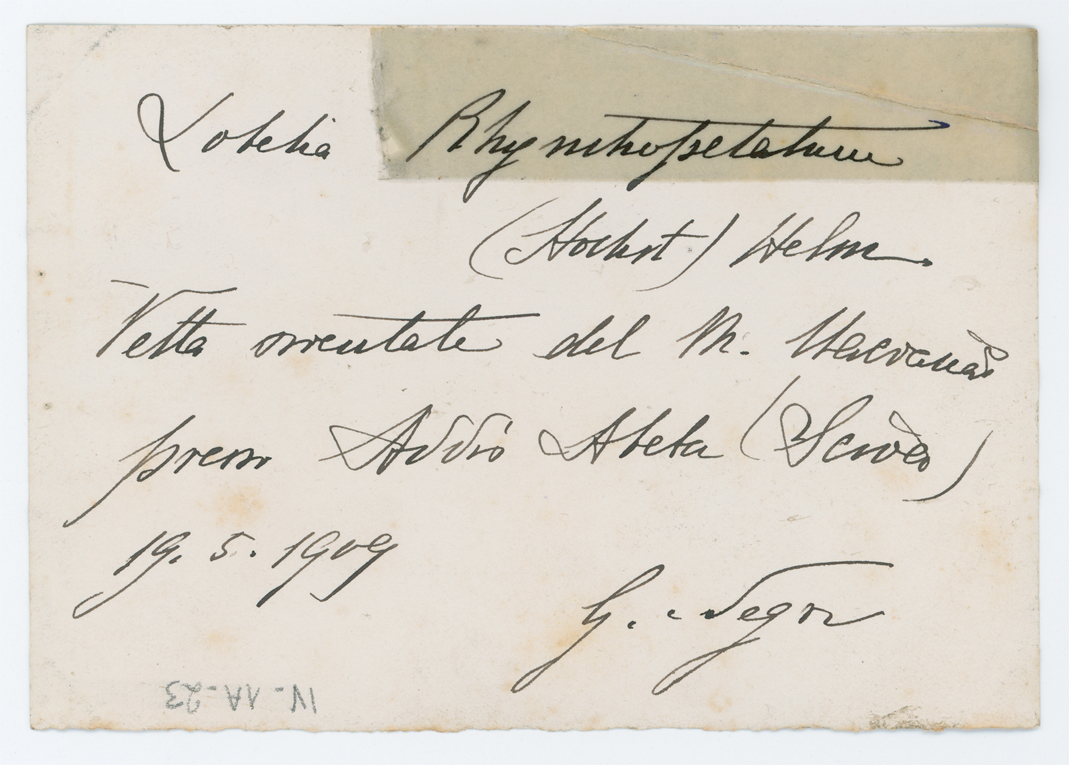 Lobelia Rhynchopetalum
(Hochst) Helm.
Vetta orientale del M.
presso Addis Abeba (Scioa)
19. 5. 1909
G. Negri
IV-1A-23